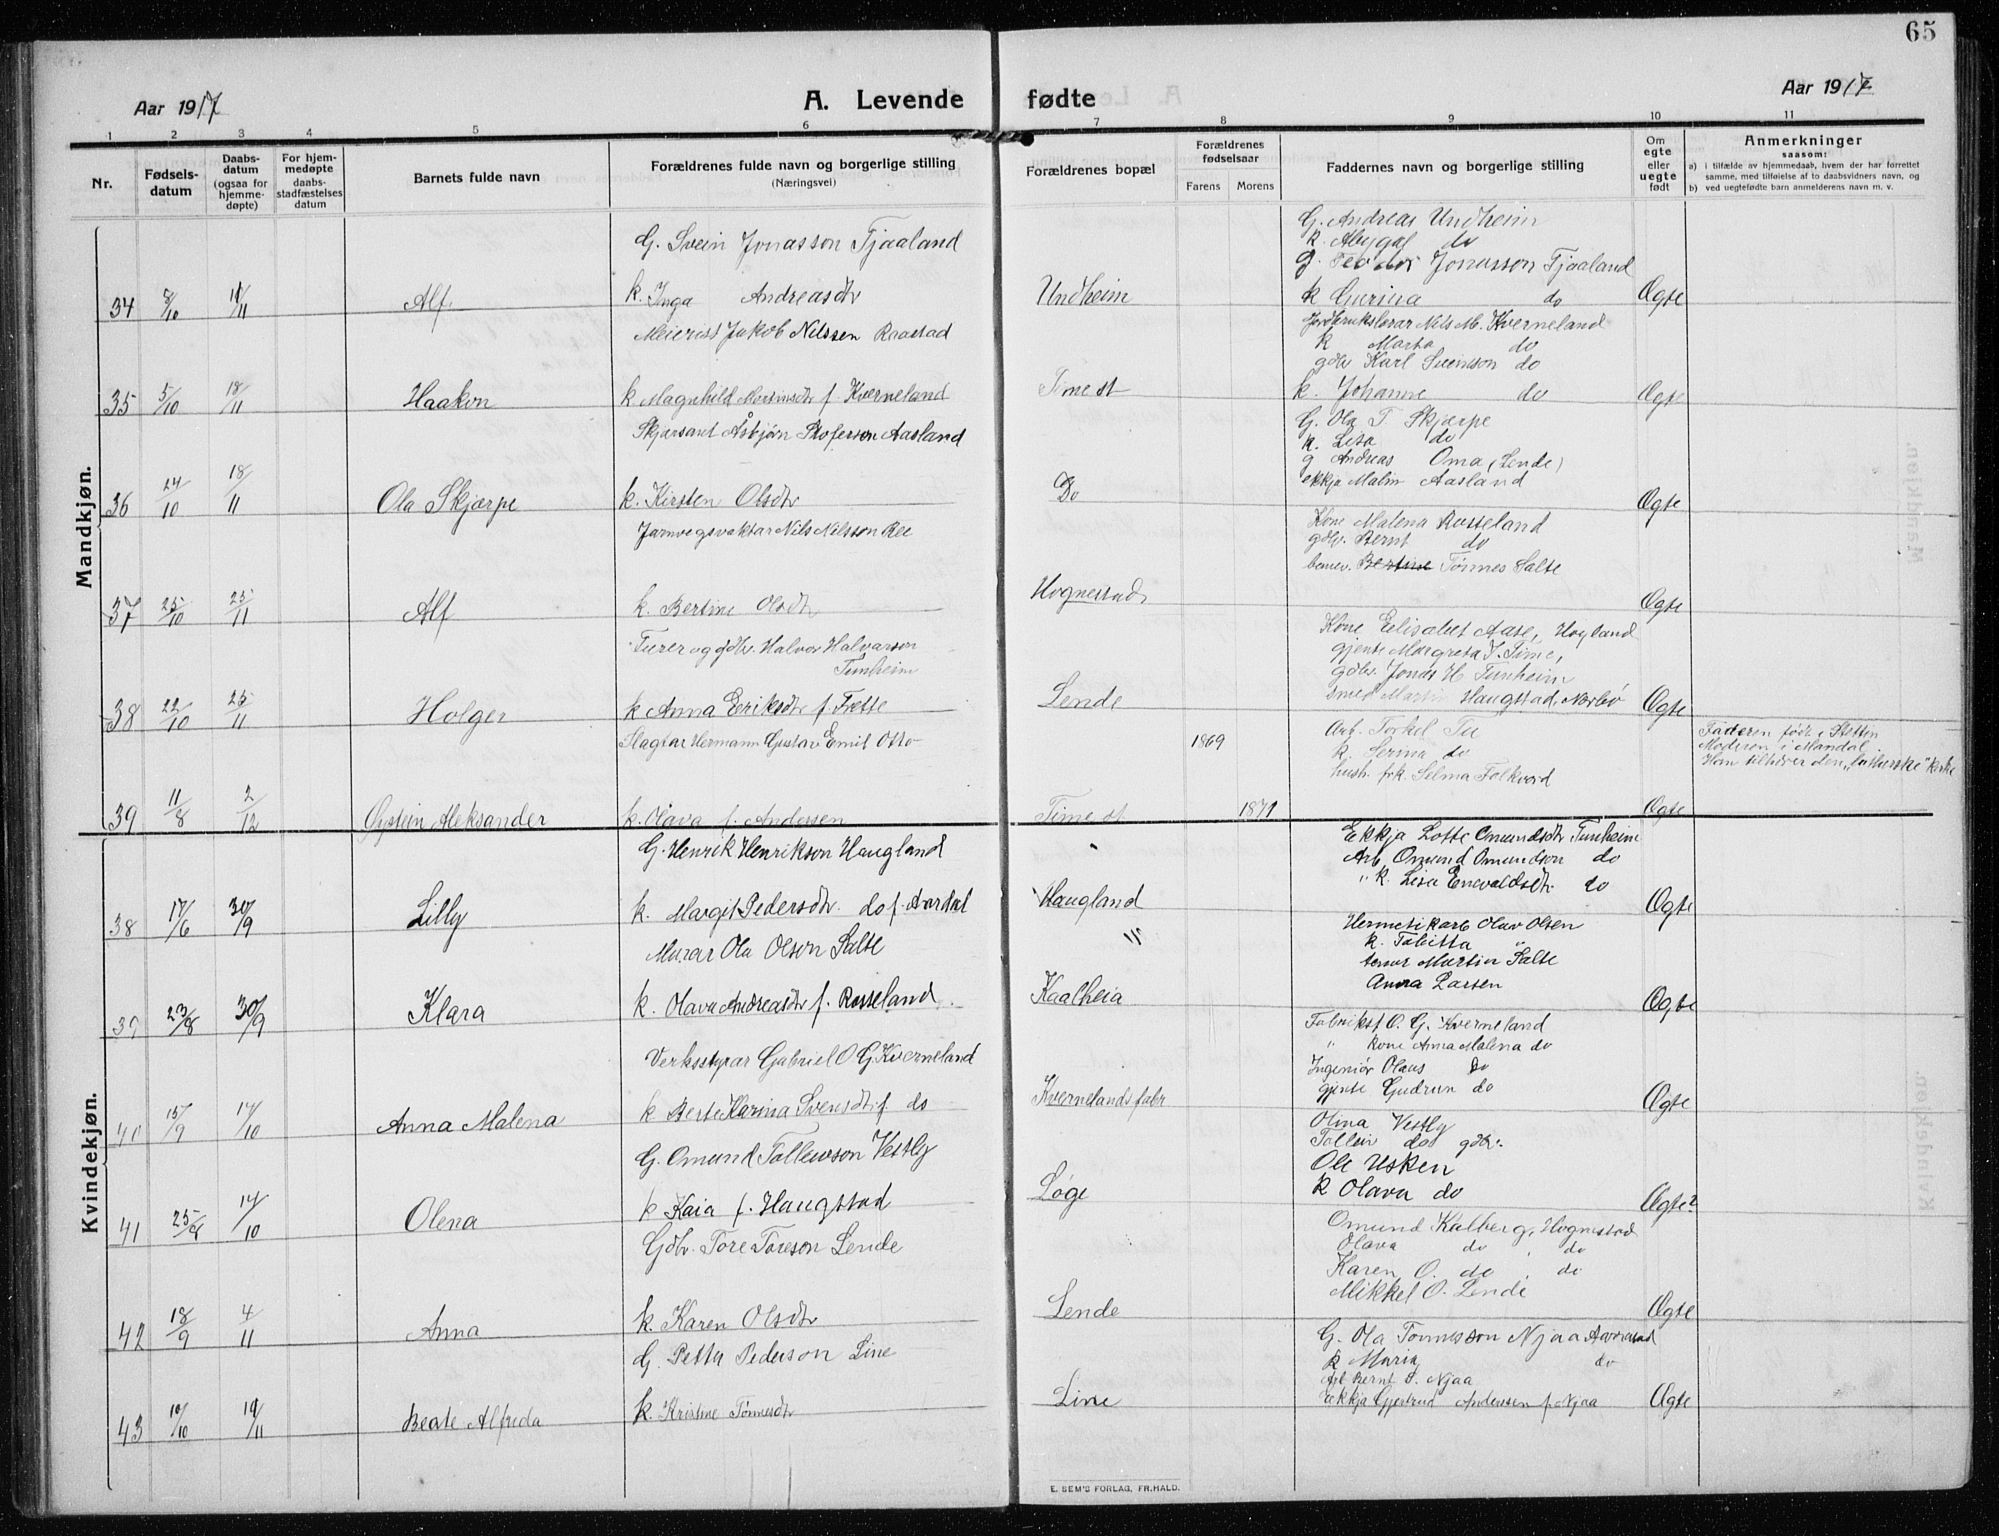 65
Aar 1917
A. Levende fødte
Aar 1917
1 2 3 4 5 6 7 8 9 10 11
Nr.
Fødsels-
datum
Daabs-
datum
(ogsaa for
hjemme-
døpte)
For hjem-
medøpte
daabs-
stadfæstelses
datum
Barnets fulde navn
Forældrenes fulde navn og borgerlige stilling
(Næringsvei)
Forældrenes bopæl
Forældrenes
fødselsaar
Farens Morens
Faddernes navn og borgerlige stilling
Om
egte
eller
uegte
født
Anmerkninger
saasom:
a) i tilfælde av hjemmedaab, hvem der har forrettet
samme, med tilføielse af to daabsvidners navn, og
b) ved uegtefødte barn anmelderens navn m. v.
Mandkjøn.
34 8/10 11/11 Alf
G. Svein Jonasson Tjaaland
k. Inga Andreasdtr
Undheim
G. Andreas Undheim
k. Abygal do
g. Teodor Jonasson Tjaaland
k Gurina do
Ægte
35 5/10 18/11 Haakon
Meierist Jakob Nilssen Raastad
k Magnhild Martinsdtr f. Kverneland
Time st
Nils M. Kverneland
k Marta do
gdbr Karl Svensson do
k. Johanne do
Ægte
36 24/10 18/11 Ola Skjærpe
Åsbjørn Aasland
k. Kirsten Olsdtr
Do
G. Ola T. Skjærpe
k. Lisa do
g Andreas Oma (Lende)
ekkja Malin Aasland
Ægte
37 25/10 25/11 Alf
Jarnvegsvaktar Nils Nilsson Ree
k. Bertine Olsdtr
Hognestad
Kone Malena Rosseland
gdbr. Bernt do
Bertine Tønnes Salte
Ægte
38 22/10 25/11 Holger
gdbr. Halvor Halvarson
Tunheim
k Anna Eriksdtr f. Frette
Lende
Kone Elisabet Aase, Hogland
gjente Margreta J. Time,
gdbr. Jonas H Tunheim
smed Martin Haugstad, Nærbø
Ægte
39 11/8 2/12 Øystein Aleksander
Slagtar Hermann Gustav Emil Otto
k. Olava f. Andersen
Time st
1869 1871
Arb. Torkel Tu
k. Serina do
hush. frk. Selma Folkvord
Ægte
Faderen født i Stettin
Moderen i Mandal
Han tilhører den "lutherske" kirke
Kvindekjøn.
38 17/6 30/9 Lilly
G. Henrik Henrikson Haugland
k. Margit Pedersdtr. do f. Aardal
Haugland
Ekkja Lotte Omundsdtr. Tunheim
Arb. Omund Omundson do
" k. Lisa Enevaldsdtr. do
Ægte
39 23/8 30/9 Klara
Murar Ola Olson Salte
k. Olava Andreasdtr f. Rosseland
Kaalheia
Hermetikarb Olav Olsen
k. Tabitta "
Martin Salte
Anna Larsen
Ægte
40 15/9 14/10 Anna Malena
Verksstyrar Gabriel O G Kverneland
k Berte Karina Svensdtr f. do
Kvernelands fabr
Fabrikst O. G. Kverneland
" kone Anna Malena do
Ingeniør Olaus do
gjente Gudrun do
Ægte
41 25/9 14/10 Olena
G. Omund Tollevson Vestly
k Kaia f. Haugstad
Løge
Olina Vestly
Tolleiv do gdbr.
Ole Usken
k Olava do
Ægte?
42 18/9 4/11 Anna
Gdbr. Tore Toreson Lende
k. Karen Olsdtr
Lende
Omund Kalberg, Hognestad
Olava do , do
Karen O. do , do
Mikkel O. Lende
Ægte
43 10/10 19/11 Beate Alfreda
G. Petter Pederson Line
k. Kristine Tønnesdtr
Line
G. Ola Tønnesson Njaa
k Maria do
Arb Bernt T. Njaa
Ekkja Gjertrud Andersen f. Njaa
Ægte
E. SEM'S FORLAG, FR.HALD.